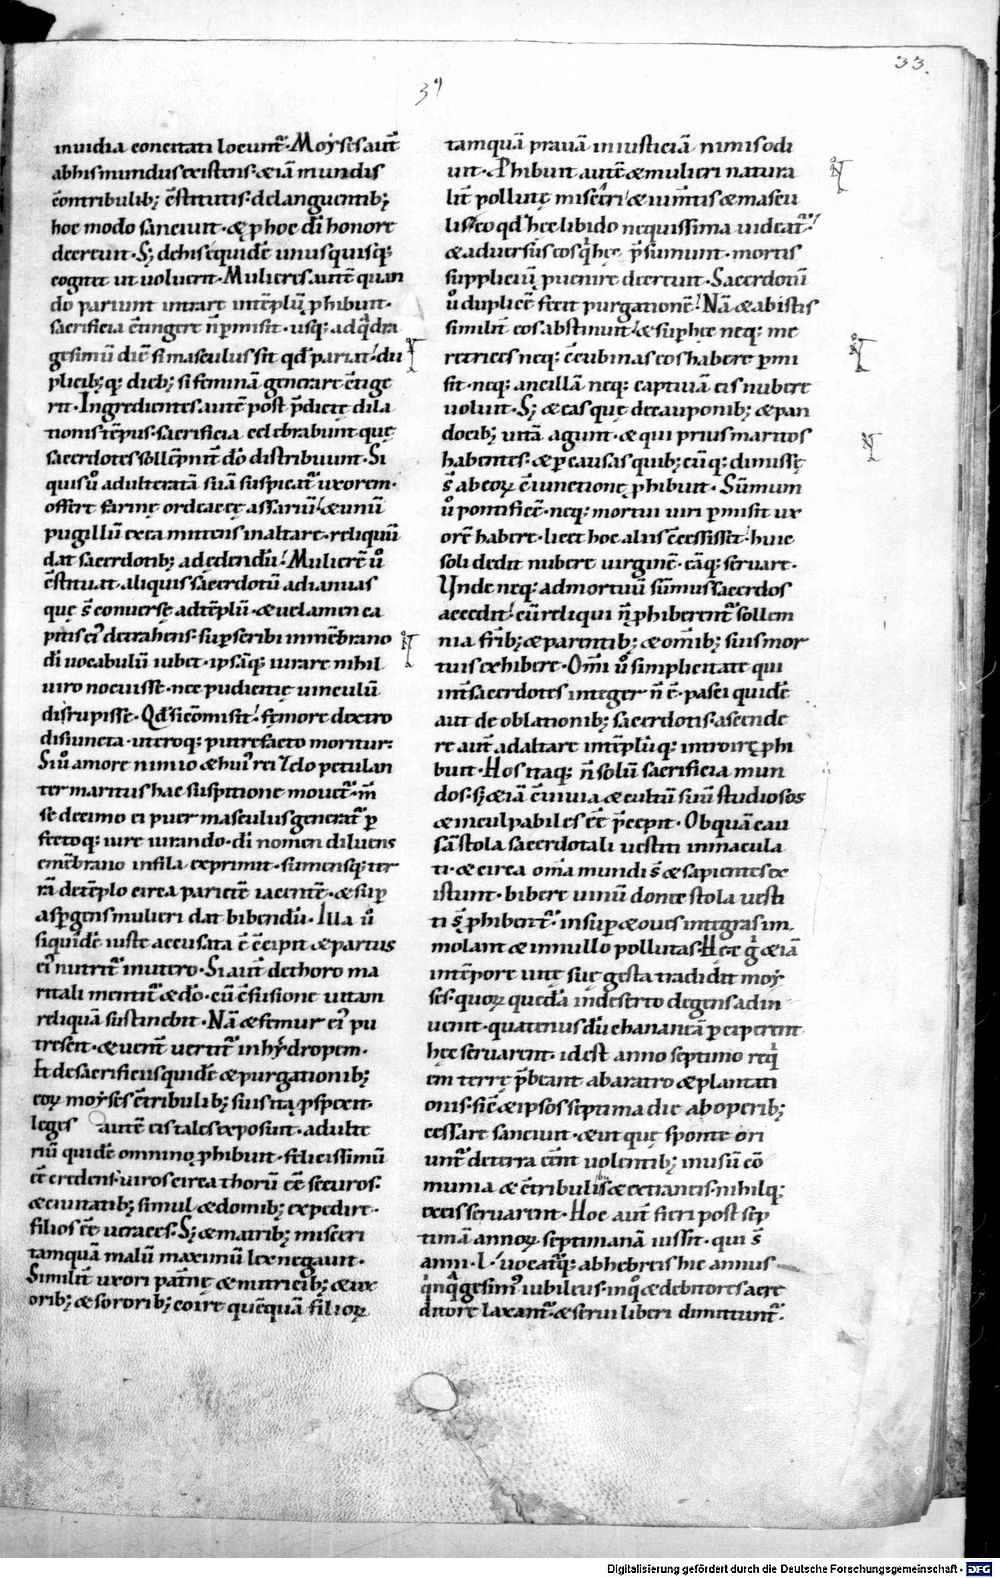 33.
39
inuidia concitati locunt᷑· Moẏses aut̄
ab his mundus existens· & iā mundis
c̄ontribulib; c̄stitutis· de languentib;
hoc modo sanciuit· & ꝓ hoc d̄i honore
decreuit· S; de his equidē unusquisq;
cognit ut uoluerit· Mulieres autē quan
do pariunt intrare int̄eplū ꝓhibuit·
sacrificia c̄tingere n̄ ꝑmisit· usq; ad q̄dra
gesimū diē si masculus sit qd̄ pariat· du
plicib; q; dieb; si feminā generare c̄tige
rit· Ingredientes autē post p̄dictę dila
tionis tēpus· sacrificia celebrabunt quę
sacerdotes sollēpnit̄ d̄o distribuunt· Si
quis ů adulteratā suā suspicat᷑ uxorem·
offert farinę ordeaceę assariū· & unū
pugillū ex ea mittens in altare· reliquū
dat sacerdotib; ad edendū· Mulierē ů
c̄stituit aliquis sacerdotū ad ianuas
quę s̄ conuersę ad tēplū· & uelamen ca
pitis ei᷒ detrahens· suꝑscribi in mēbrano
d̄i uocabulū iubet· ipsāq; iurare nihil
uiro nocuisse· nec pudicitię uinculū
disrupisse· Qd̄ si cōmisit· femore dextro
disiuncta· uteroq; putrefacto moritur·
Si ů amore nimio & hui᷒ rei zelo petulan
ter maritus hac suspitione mouet᷑· m̄
se decimo ei puer masculus generat᷑· ꝑ
fectoq; iure iurando· d̄i nomen diluens
e mēbrano in fila exprimit· sumensq; ter
rā de tēplo circa parietē iacentē· & suꝑ
aspgens mulieri dat bibendū· Illa ů
siquidē iuste accusata ē c̄cipit & partus
ei᷒ nutrit᷑ in utero· Si aut̄ de thoro ma
ritali mentit᷑ & d̄o· cū c̄fusione uitam
reliquā sustinebit· Nā & femur ei᷒ pu
trescit· & uent̄ uertit᷑ in hẏdropem·
Et de sacrificiis quidē & purgationib;
eoꝝ moẏses c̄tribulib; suis ita ꝓspexit·
leges autē eis tales exposuit· adulte
riū quidē omnino ꝓhibuit· felicissimū
ēē credens· uiros circa thorū ēē securos·
& ciuitatib; simul & domib; expedire·
filios ēē ueraces· S; & matrib; misceri
tamquā malū maximū lex negauit·
Similit̄ uxori pat̄nę & nutricib; & ux
orib; & sororib; coire quēquā filioꝝ
tamquā prauā iniusticiā nimis odi
uit· Phibuit autē & mulieri natura
lit̄ pollutę misceri· & iumētis & mascu
lis· eo qd̄ hęc libido nequissima uideat᷑·
& aduersus eos q̇ hęc p̄sumunt· mortis
suppliciū puenire decreuit· Sacerdotū
ů duplicē fecit purgationē· Nā & ab istis
similit̄ eos abstinuit· & suꝑ hęc neq; me
retrices neq; c̄cubinas eos habere ꝑmi
sit· neq; ancillā neq; captiuā eis nubere
uoluit· S; & eas quę de cauponib; & pan
docib; uitā agunt· & qui prius maritos
habentes· & ꝑ causas quib; cūq; dimissę
s̄ ab eoꝝ c̄iunctione ꝓhibuit· Sūmum
ů pontificē· neq; mortui uiri ꝑmisit ux
orē habere· licet hoc aliis c̄cessissit· huic
soli dedit nubere uirginē· eāq; seruare·
Vnde neq; ad mortuū sūmus sacerdos
accedit· cū reliqui n̄ ꝓhiberent᷑ sollem
nia fr̄ib; & parentib; & om̄ib; suis mor
tuis exhibere· Om̄i ů simplicitate qui
int̄ sacerdotes integer n̄ ē· pasci quidē
aut de oblationib; sacerdotis· ascende
re aut̄ ad altare int̄eplūq; introire ꝓhi
buit· Hos itaq; n̄ solū sacrificia mun
dos· s; & iā c̄uiuia & cultū suū studiosos
& inculpabiles ēē p̄cepit· Ob quā cau
sā stola sacerdotali uestiti immacula
ti· & circa om̄a mundi s̄ & sapientes ex
istunt· bibere uinū donec stola uesti
ti s̄ ꝓhibent᷑· insuꝑ & oues integras im
molant & in nullo pollutas· Hęc g̊ & iā
int̄epore uitę suę gesta tradidit moẏ
ses· quoꝝ quedā in deserto degens ad in
uenit· quatenus dū chananeā ꝑciperent
hęc seruarent· id est anno septimo req̇
em terrę p̄beant ab aratro & plantati
onis· sic & ipsos septima die ab operib;
cessare sanciuit· & ut quę sponte ori
unt᷑ de terra ēēnt uolentib; in usū cō
munia & c̄tribulib; & extraneis· nihilq;
ex eis seruarent· Hoc aut̄ fieri post sep
timā annoꝝ septimanā iussit· qui s̄
anni· L· uocat᷑q; ab hebreis hic annus
q̇nq̄gesim᷒ iubileus· in q̊ & debitores a cre
ditore laxant᷑· & serui liberi dimittunt᷑·
Digitalisierung gefördert durch die Deutsche Forschungsgemeinschaft - DFG